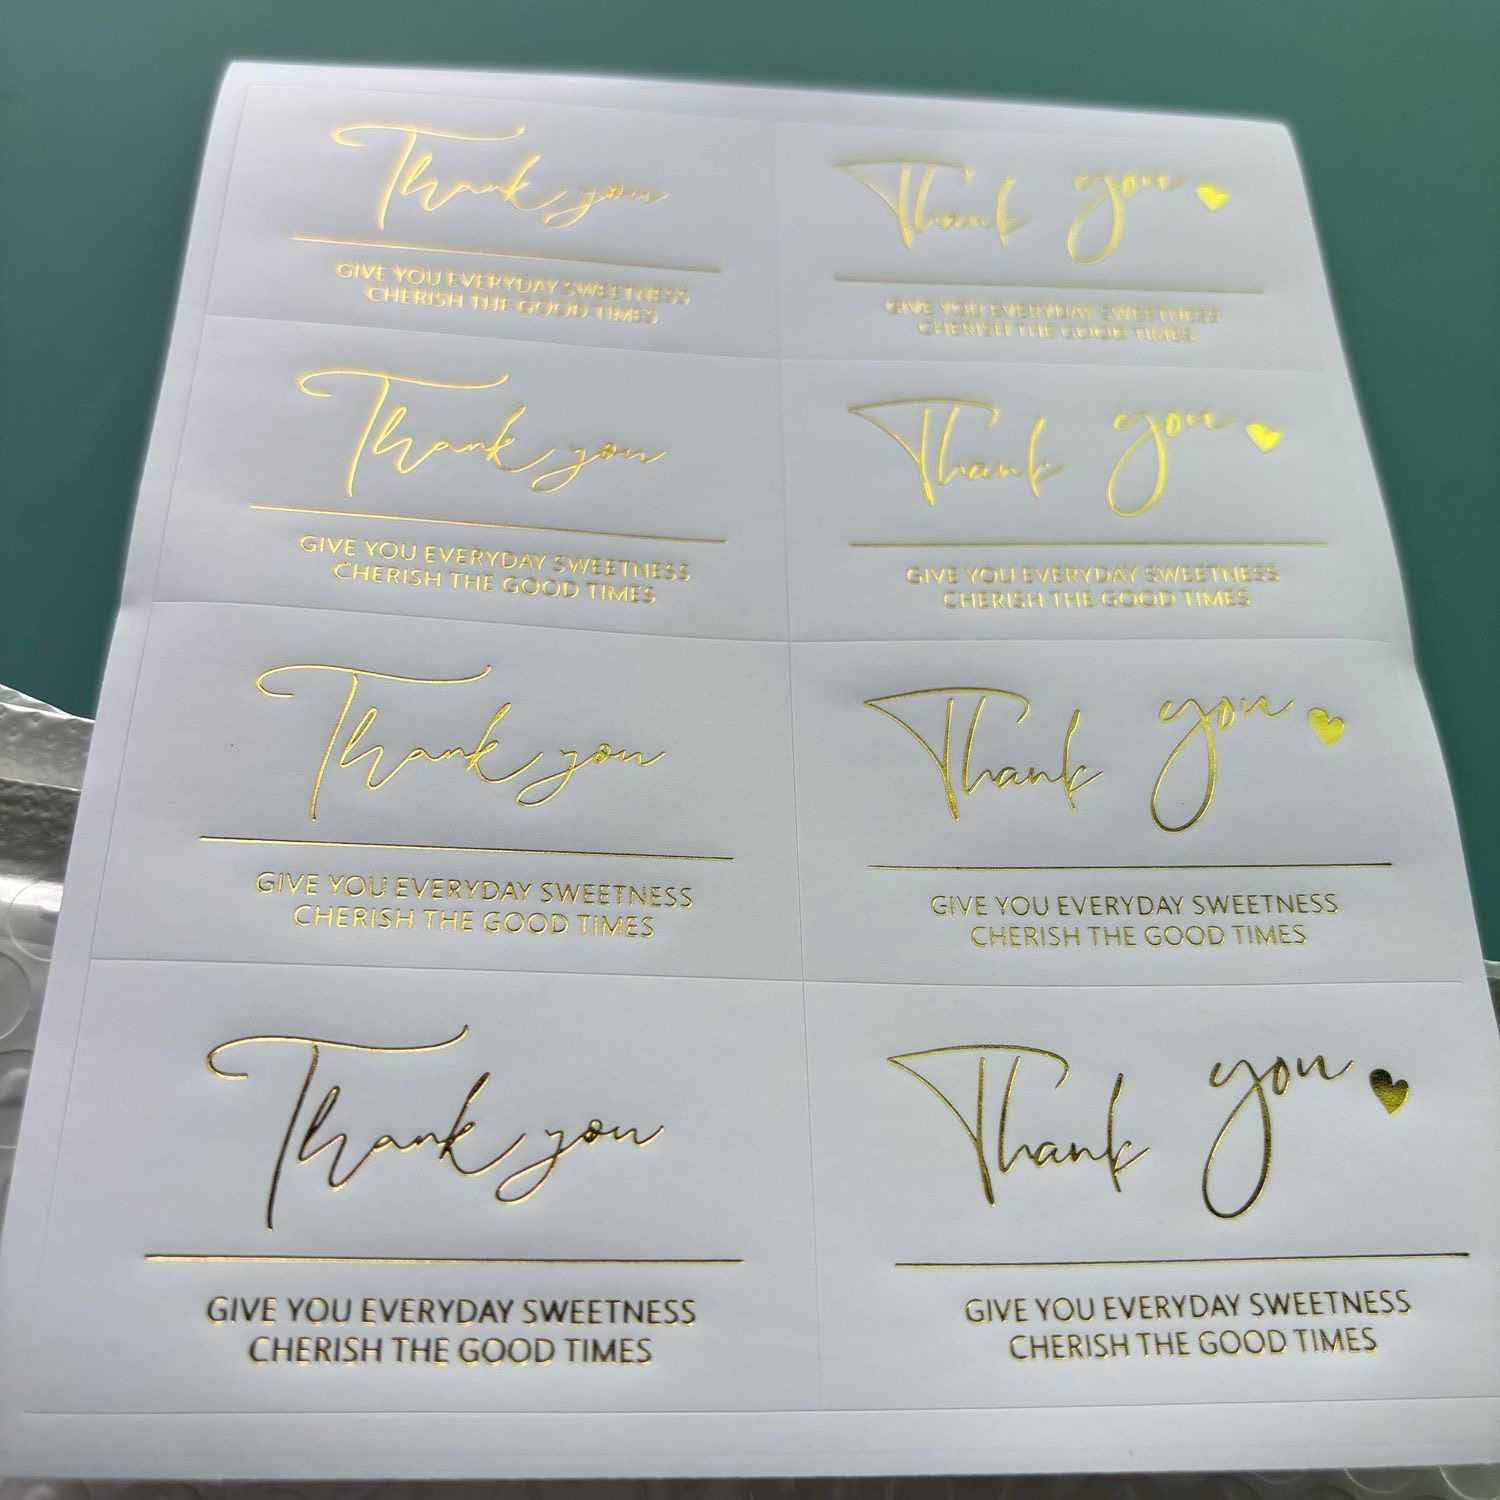 Thank you
GIVE YOU EVERYDAY SWEETNESS
CHERISH THE GOOD TIMES
Thank you
GIVE YOU EVERYDAY SWEETNESS
CHERISH THE GOOD TIMES
Thank you
GIVE YOU EVERYDAY SWEETNESS
CHERISH THE GOOD TIMES
Thank you
GIVE YOU EVERYDAY SWEETNESS
CHERISH THE GOOD TIMES
Thank you
GIVE YOU EVERYDAY SWEETNESS
CHERISH THE GOOD TIMES
Thank you
GIVE YOU EVERYDAY SWEETNESS
CHERISH THE GOOD TIMES
Thank you
GIVE YOU EVERYDAY SWEETNESS
CHERISH THE GOOD TIMES
Thank you
GIVE YOU EVERYDAY SWEETNESS
CHERISH THE GOOD TIMES